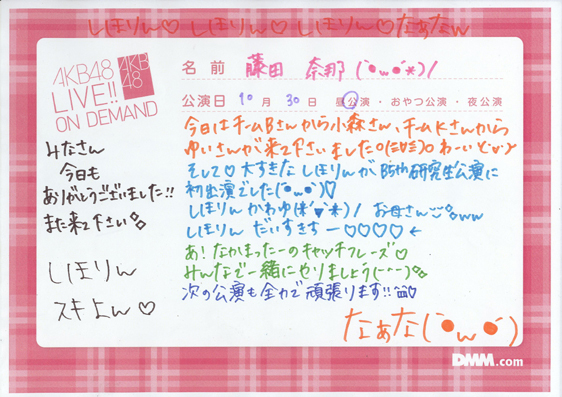 しほりん♡ しほりん♡ しほりん♡なぁたw
AKB48
LIVE!!
ON DEMAND
AKB
48
名前 藤田 奈那 (`・ω・´*)/
公演日 10月30日・昼公演・おやつ公演・夜公演
今日はチームBさんから小森さん、チームKさんから
ゆいさんが来て下さいましたo(≧∀≦)o わーい
そして♡大すきなしほりんがB5th研究生公演に
初出演でした(`・ω・´)♡
しほりんかわゆ(*´▽`*)/ お母さんww
しほりん だいすきすー♡♡♡♡←
あ!なかまったーのキャッチフレーズ♡
みんなで一緒にやりましょう(--)
次の公演も全力で頑張ります!!
なぁな(`・ω・´)
みなさん
今日も
ありがとうございました!!
また来て下さい
しほりん
スキよん♡
DMM.com